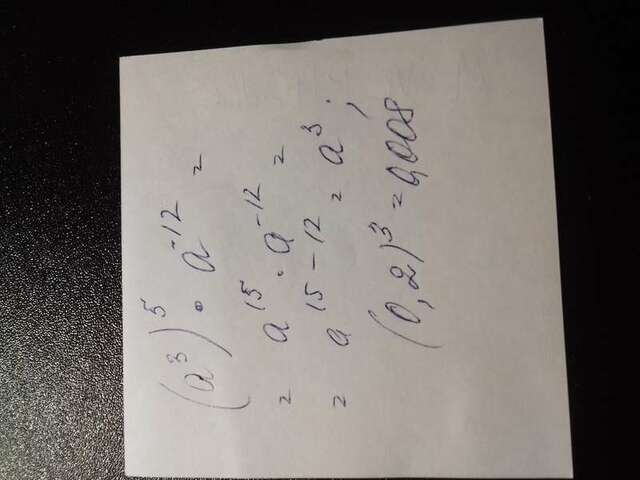 (a³)⁵ · a⁻¹² =
= a¹⁵ · a⁻¹² =
= a¹⁵⁻¹² = a³;
(0,2)³ = 0,008